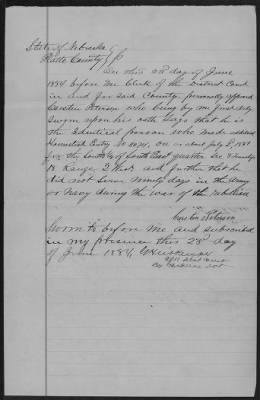 State of Nebraska
Platte County
On this 28 day of June
1884 before me Clerk of the District Court
in and for said County personally appeared
Carsten Petersen who being by me first duly
sworn upon his oath says that he is
the identical person who made
Homestead Entry No on or about July 5th
for the South of South East quarter Sec 8 Township
18 Range 2 West and further that he
did not serve ninety days in the Army
or Navy during the war of the rebellion
Carsten Petersen
Sworn to before me and subscribed
in my presence this 28 day
of June 1884